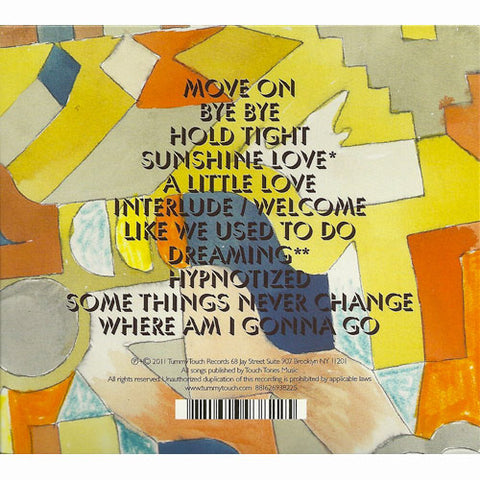 MOVE ON
BYE BYE
HOLD TIGHT
SUNSHINE LOVE*
A LITTLE LOVE
INTERLUDE / WELCOME
LIKE WE USED TO DO
DREAMING**
HYPNOTIZED
SOME THINGS NEVER CHANGE
WHERE AM I GONNA GO
℗+© 2011 Tummy Touch Records 68 Jay Street Suite 907 Brooklyn NY 11201
All songs published by Touch Tones Music
All rights reserved Unauthorized duplication of this recording is prohibited by applicable laws
www.tummytouch.com 881626938225